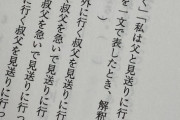 く」「私は父と見送りに行
を一文で表したとき、解釈
)
外に行く叔父を見送りに行っ
叔父を急いで見送りに行っ
叔父を急いで見送りに行
く叔父を見送りに行っ